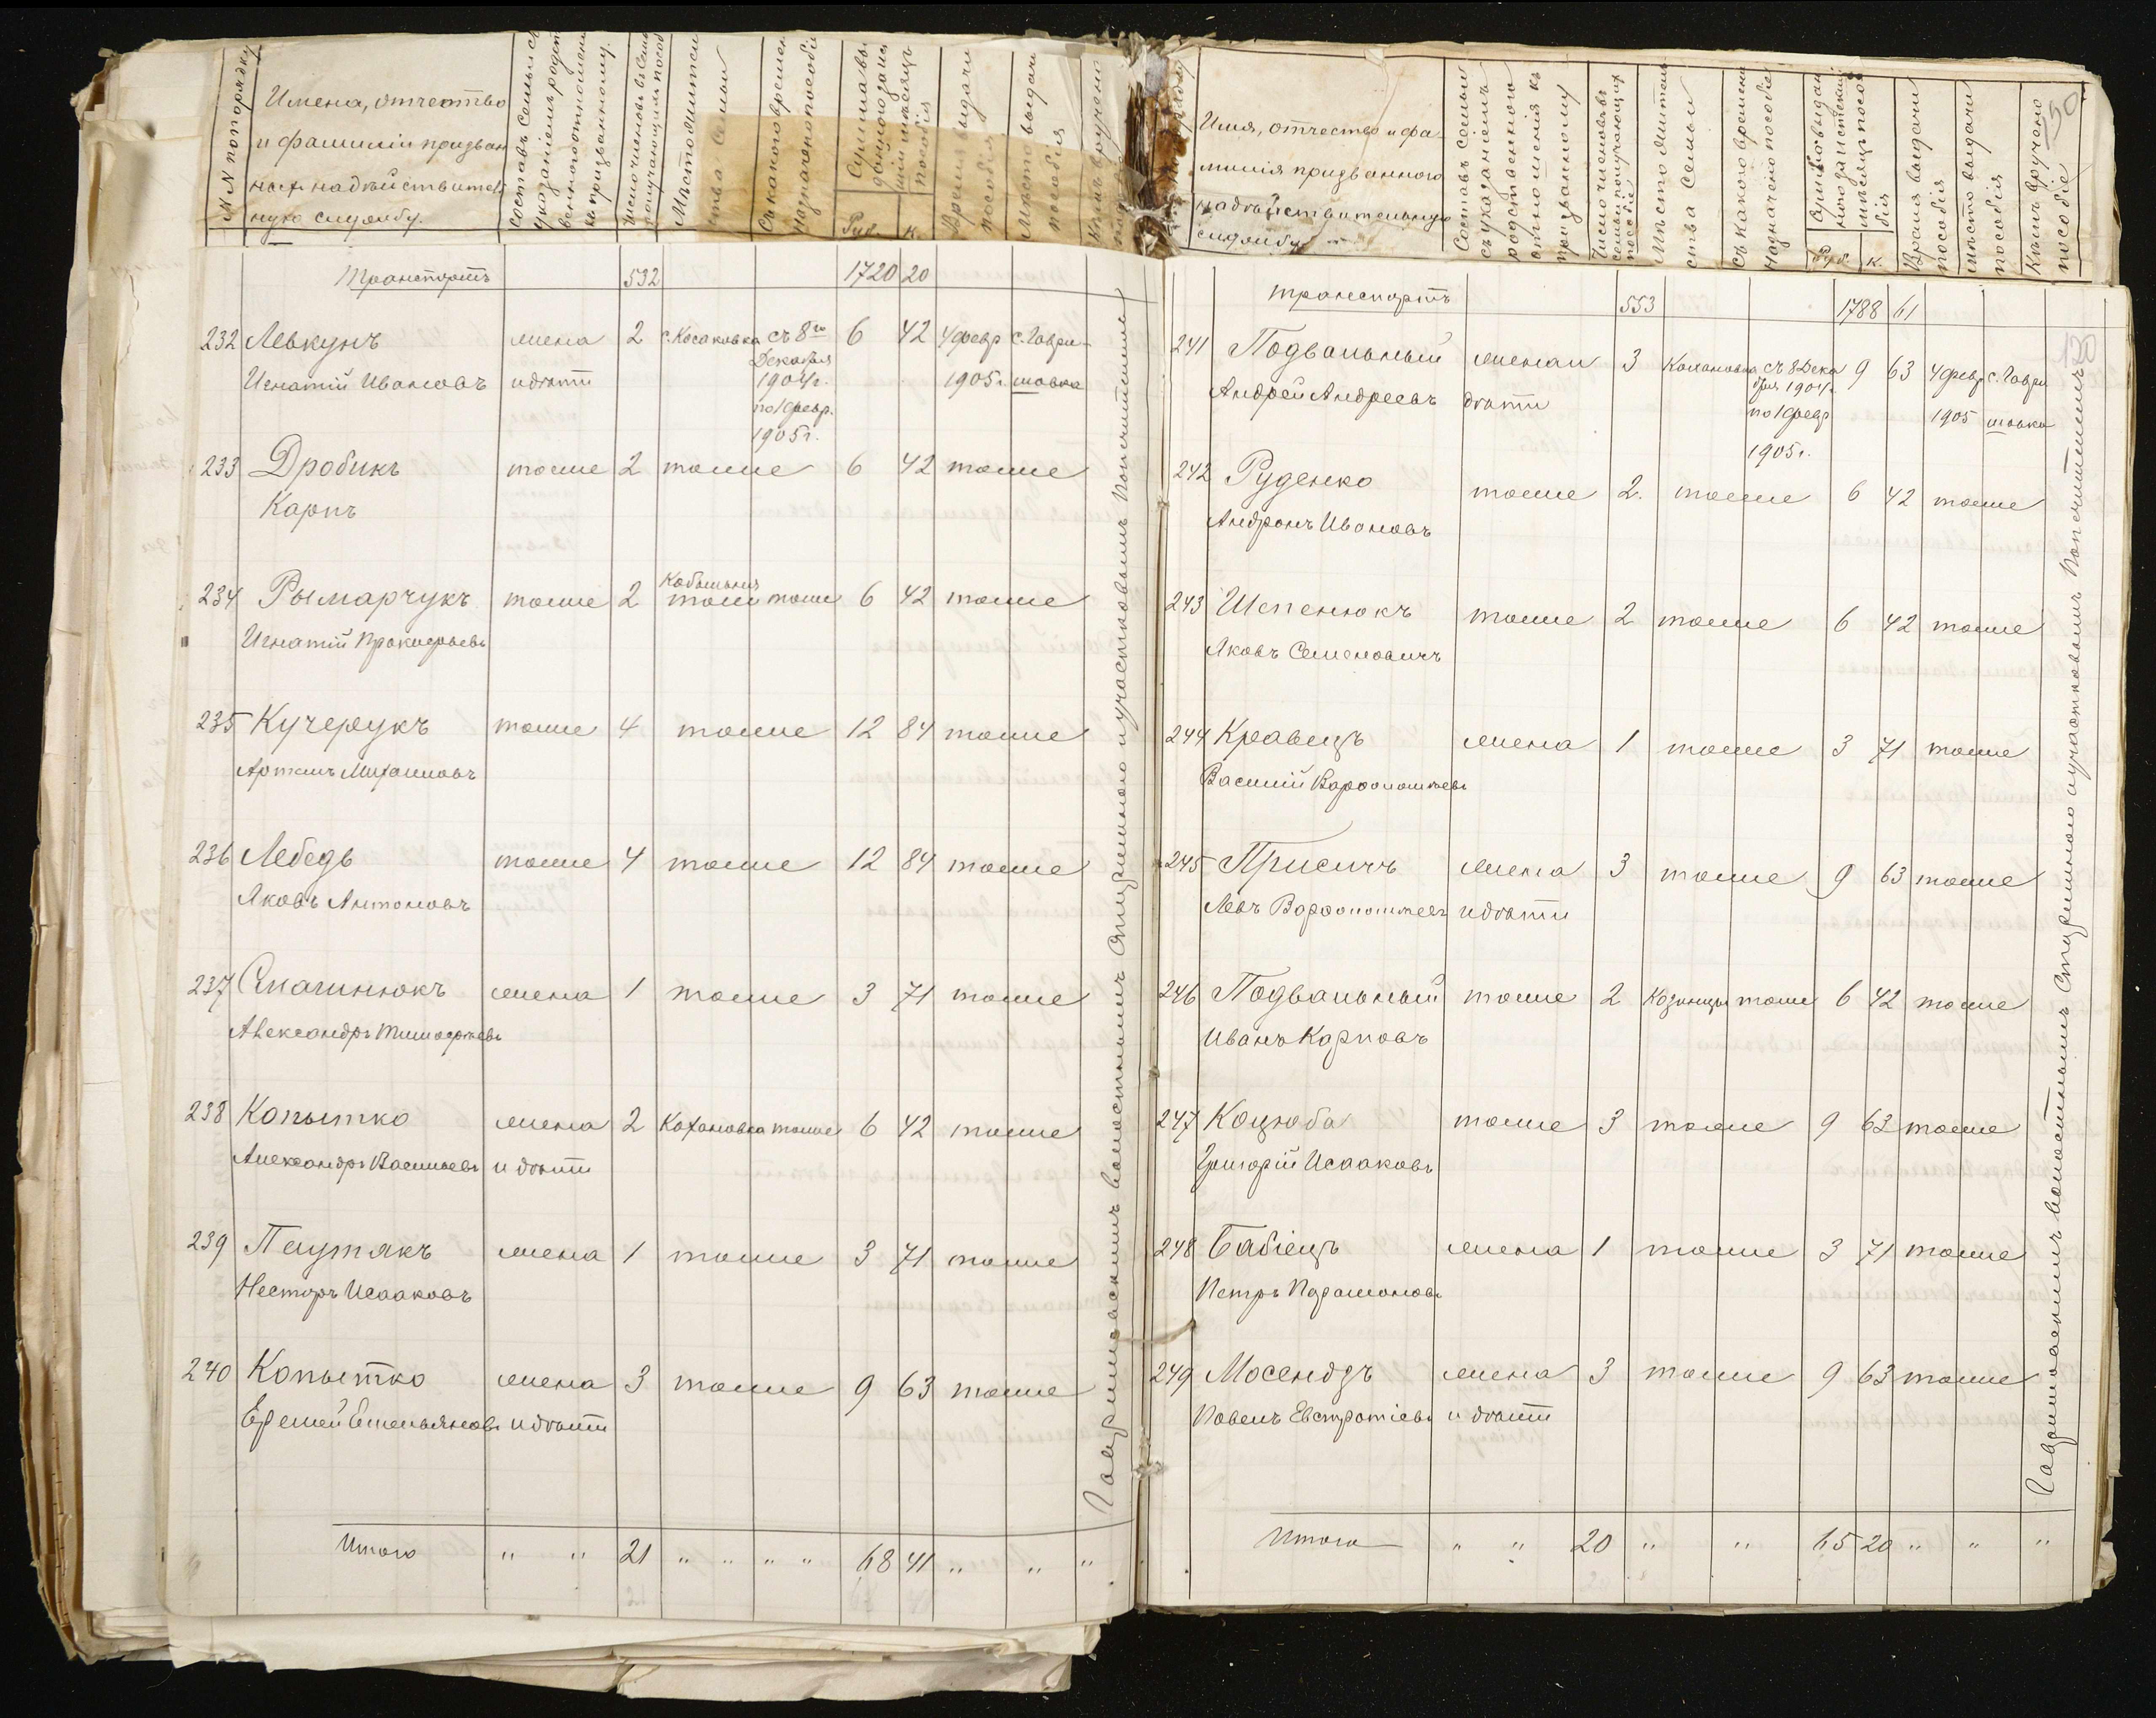 №№ по порядку
Имена, отчество
и фамилiи призван
ныхъ на дѣйствитель
ную службу.
Составъ семьи съ
указанiемъ родст
веннаго отношенiя
къ призванному.
Число членовъ въ семьѣ
получающихъ пособ
Мѣсто жительства семьи
Съ какого времени
назначено пособiе
Сумма вы
даннаго за
мѣсяцъ
пособiя
Руб. к.
Время выдачи
пособiя
Мѣсто выдачи
пособiя
Кому вручено
Транспортъ 532 1720 20
232 Левкунъ жена 2 с. Косаковка съ 8го 6 42 4 февр с. Гаври-
Декабря
Игнатiй Ивановъ и дѣти 1904 г. 1905 г. шовка
по 1 февр.
1905 г.
233 Дробикъ тоже 2 тоже 6 42 тоже
Карпъ
234 Рымарчукъ тоже 2 тоже тоже 6 42 тоже
Игнатiй Прокофьевъ
235 Кучерукъ тоже 4 тоже 12 84 тоже
Артемъ Михаиловъ
236 Лебедь тоже 4 тоже 12 84 тоже
Яковъ Антоновъ
237 жена 1 тоже 3 71 тоже
Александръ Тимофѣевъ
238 Копытко жена 2 Кохановка тоже 6 42 тоже
Александръ Васильевъ и дѣти
239 Паутякъ жена 1 тоже 3 71 тоже
Несторъ Исааковъ
240 Копытко жена 3 тоже 9 63 тоже
Еремей Емельяновъ и дѣти
Итого " " 21 " " " " 68 41 " " "
Гавришовскимъ волостнымъ Старшиною и участковымъ Попечителемъ
Имя, отчество и фа
милiя призваннаго
на дѣйствительную
службу
Составъ семьи
съ указанiемъ
родственнаго
отношенiя къ
призванному
Число членовъ въ
семьѣ получающихъ
пособiе
Мѣсто житель
ства семьи
Съ какого времени
назначено пособiе
мѣсяцъ пособiя
Руб. к.
Время выдачи
пособiя
Мѣсто выдачи
пособiя
Кому вручено
пособiе
50
Транспортъ 553 1788 61
241 Подвальный жена и 3 Кохановка съ 8 Дека 9 63 4 февр с. Гаври
бря 1904 г.
Андрей Андреевъ дѣти по 1 февр 1905 шовка
1905 г.
242 Руденко тоже 2. тоже 6 42 тоже
Андронъ Ивановъ
243 Шепенюкъ тоже 2 тоже 6 42 тоже
Яковъ Семеновичъ
244 Кравецъ жена 1 тоже 3 71 тоже
Василiй Варфоломѣевъ
245 Присичъ жена 3 тоже 9 63 тоже
Левъ Варфоломѣевъ и дѣти
246 Подвальный тоже 2 Козинцы тоже 6 42 тоже
Иванъ Карповъ
247 Коцюба тоже 3 тоже 9 63 тоже
Григорiй Исааковъ
248 Бабiецъ жена 1 тоже 3 71 тоже
Петръ Парамоновъ
249 Мосендзъ жена 3 тоже 9 63 тоже
Павелъ Евстратiевъ и дѣти
Итого " " 20 " " 65 20 " " "
Гавришовскимъ волостнымъ Старшиною и участковымъ Попечителемъ